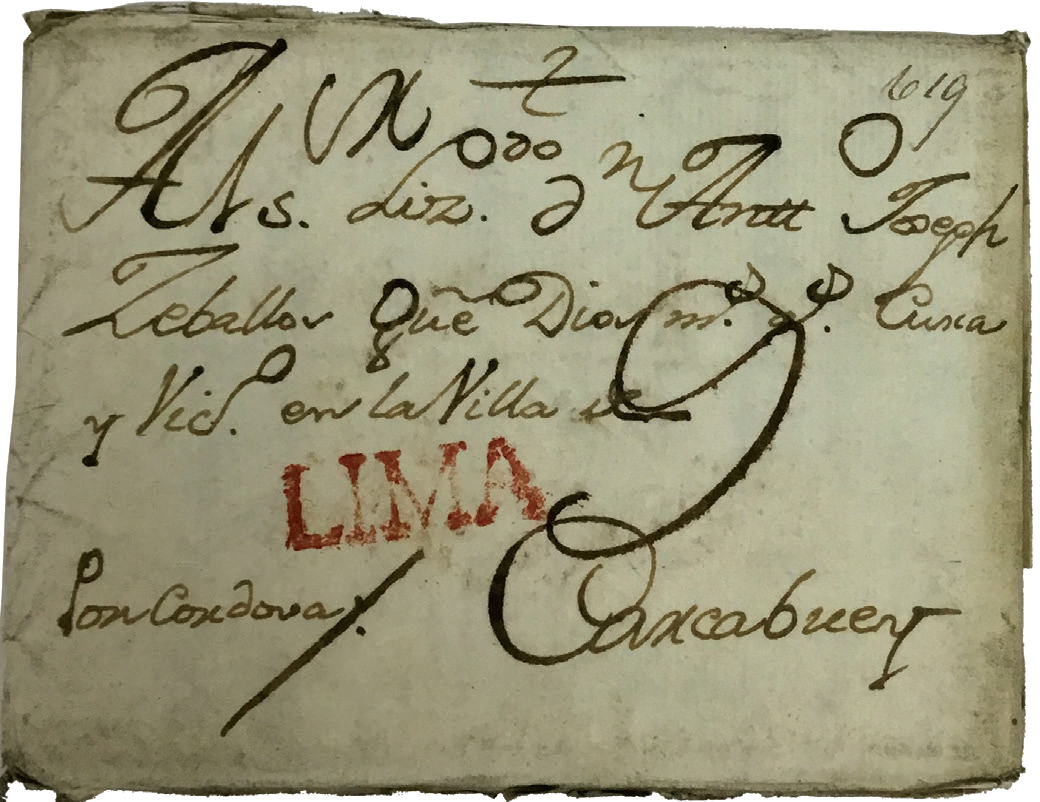 619
Al S.r Liz.do D.n Antt.o Joseph
Zeballos Que Dios m.s a.s Cura
y Vic.o en la Villa de
LIMA
Por Cordova. Carcabuey